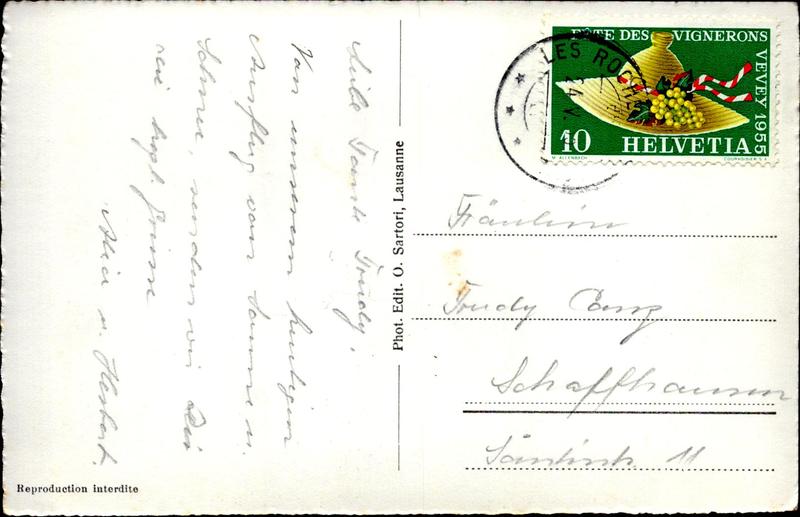 Liebe Tante Trudy,
Von unserem heutigen
Ausflug von Sonne u.
Schnee, senden wir Dir
viel Grüsse
u. Herbert.
Phot. Edit. O. Sartori, Lausanne
Reproduction interdite
FÊTE DES VIGNERONS
VEVEY 1955
10 HELVETIA
M. ALLENBACH COURVOISIER S.A.
LES ROCHE
Fräulein
Trudy Canz
Schaffhausen
11